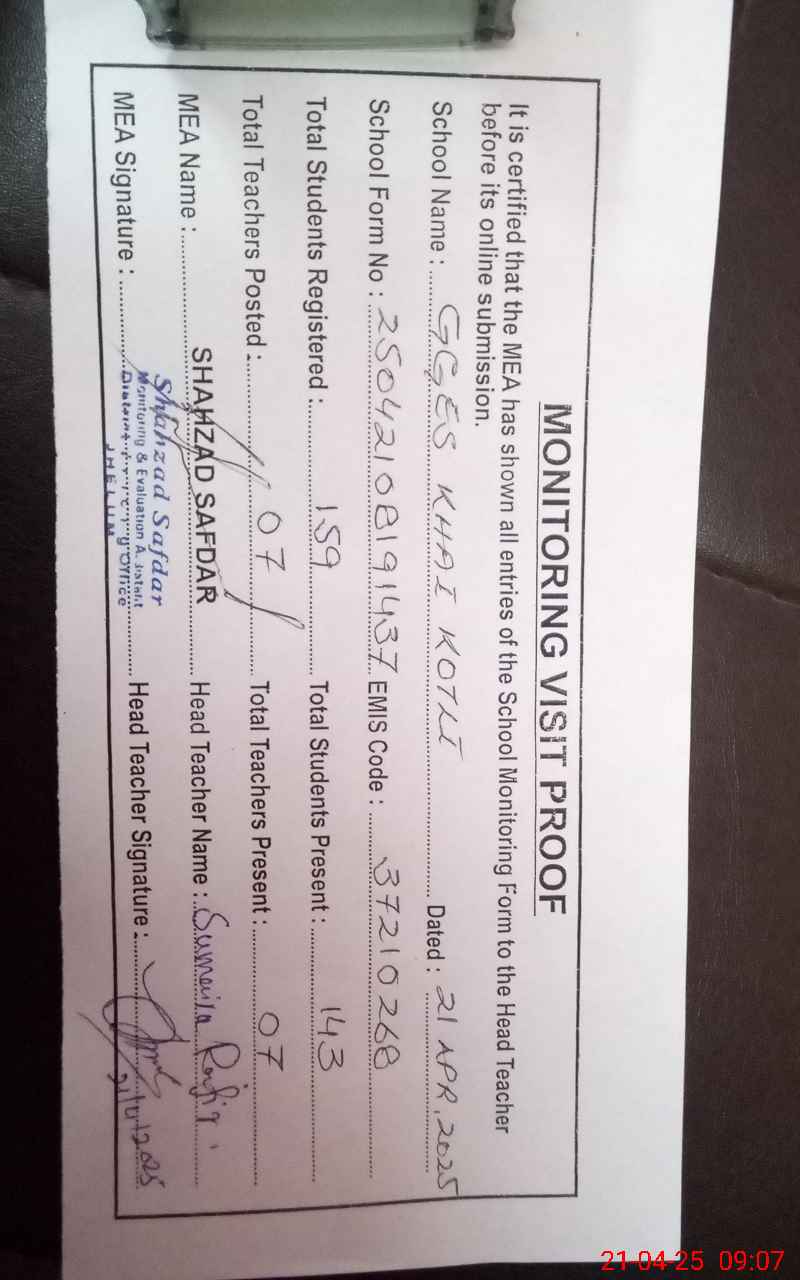 MONITORING VISIT PROOF
It is certified that the MEA has shown all entries of the School Monitoring Form to the Head Teacher
before its online submission.
School Name : GGES KHAI KOTLI Dated : 21 APR, 2025
School Form No : 25042108191437 EMIS Code : 37210268
Total Students Registered : 159 Total Students Present : 143
Total Teachers Posted : 07 Total Teachers Present : 07
MEA Name : SHAHZAD SAFDAR Head Teacher Name : Sumaira Rafiq
MEA Signature : Head Teacher Signature :
Shahzad Safdar
Monitoring & Evaluation Assistant
District Office
JHELUM
21/4/2025
21-04-25 09:07